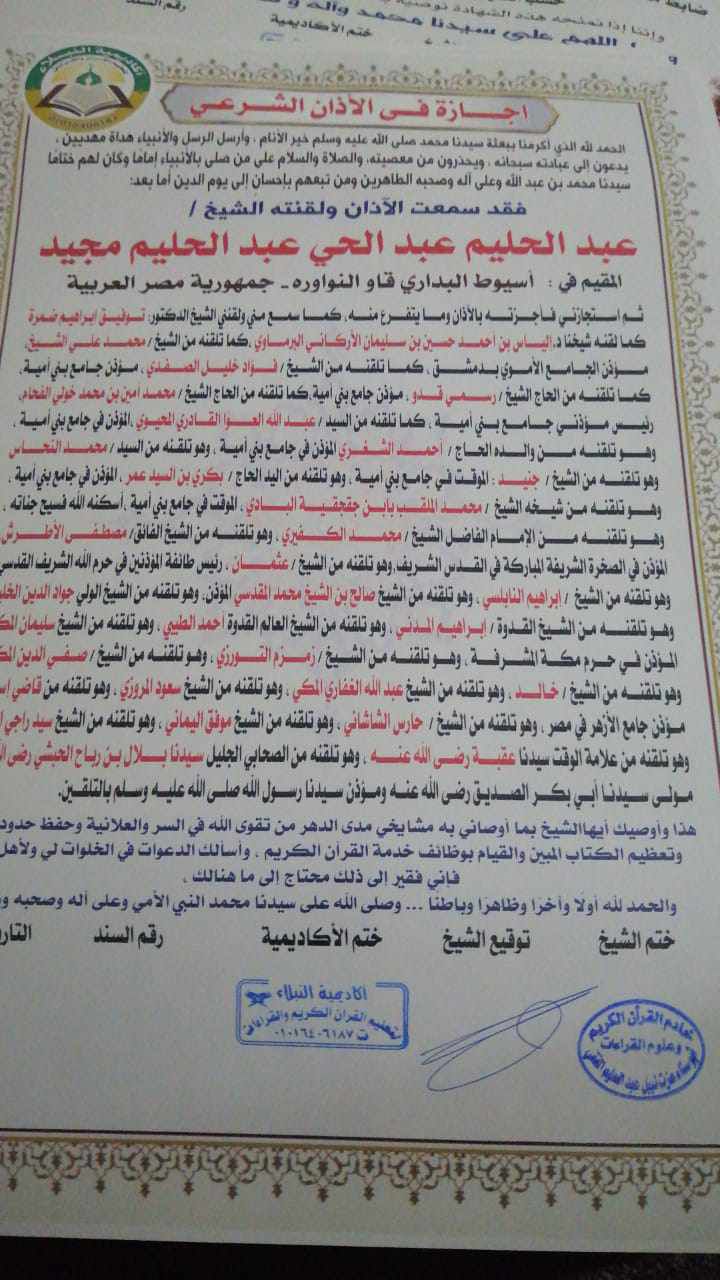 ختم الأكاديمية
أكاديمية النبلاء
اجازة فى الأذان الشرعي
الحمد لله الذي أكرمنا ببعثة سيدنا محمد صلى الله عليه وسلم خير الأنام ، وأرسل الرسل والأنبياء هداة مهديين ،
يدعون إلى عبادته سبحانه ، ويحذرون من معصيته، والصلاة والسلام على من صلى بالأنبياء إماما وكان لهم ختامًا
سيدنا محمد بن عبد الله وعلى آله وصحبه الطاهرين ومن تبعهم بإحسان إلى يوم الدين أما بعد:
فقد سمعت الآذان ولقنته الشيخ /
عبد الحليم عبد الحي عبد الحليم مجيد
المقيم في : أسيوط البداري قاو النواوره - جمهورية مصر العربية
ثم استجازني فأجزته بالأذان وما يتفرع منه، كما سمع مني ولقنني الشيخ الدكتور: توفيق ابراهيم ضمرة
كما لقنه شيخنا د. الياس بن احمد حسين بن سليمان الأركاني البرماوي ، كما تلقنه من الشيخ / محمد علي الشيخ،
مؤذن الجامع الأموي بدمشق ، كما تلقنه من الشيخ / فؤاد خليل الصفدي ، مؤذن جامع بني أمية،
كما تلقنه من الحاج الشيخ / رسمي قدو ، مؤذن جامع بني أمية، كما تلقنه من الحاج الشيخ / محمد أمين بن محمد خولي الفحام،
رئيس مؤذني جامع بني أمية ، كما تلقنه من السيد / عبد الله العوا القادري المحيوي ، المؤذن في جامع بني أمية ،
وهو تلقنه من والده الحاج / أحمد الشغري المؤذن في جامع بني أمية ، وهو تلقنه من السيد / محمد النحاس
وهو تلقنه من الشيخ / جنيد : الموقت في جامع بني أمية ، وهو تلقنه من اليد الحاج / بكري بن السيد عمر ، المؤذن في جامع بني أمية ،
وهو تلقنه من شيخه الشيخ / محمد الملقب بابن جقجقية البادي ، الموقت في جامع بني أمية ، أسكنه الله فسيح جناته ،
وهو تلقنه من الإمام الفاضل الشيخ / محمد الكفيري ، وهو تلقنه من الشيخ الفائق/ مصطفى الأطرش
المؤذن في الصخرة الشريفة المباركة في القدس الشريف، وهو تلقنه من الشيخ / عثمان ، رئيس طائفة المؤذنين في حرم الله الشريف القدسي
وهو تلقنه من الشيخ / إبراهيم النابلسي ، وهو تلقنه من الشيخ صالح بن الشيخ محمد المقدسي المؤذن، وهو تلقنه من الشيخ الولي جواد الدين
وهو تلقنه من الشيخ القدوة / إبراهيم المدني ، وهو تلقنه من الشيخ العالم القدوة احمد الطيبي ، وهو تلقنه من الشيخ سليمان
المؤذن في حرم مكة المشرفة ، وهو تلقنه من الشيخ / زمزم القورزي ، وهو تلقنه من الشيخ / صفي الدين
وهو تلقنه من الشيخ / خالد ، وهو تلقنه من الشيخ عبد الله الغفاري المكي ، وهو تلقنه من الشيخ سعود المروزي ، وهو تلقنه من قاضي
مؤذن جامع الأزهر في مصر ، وهو تلقنه من الشيخ / حارس الشاشاني ، وهو تلقنه من الشيخ موفق اليماني ، وهو تلقنه من الشيخ سيد راجي
وهو تلقنه من علامة الوقت سيدنا عقبة رضى الله عنه ، وهو تلقنه من الصحابي الجليل سيدنا بلال بن رباح الحبشي رضى
مولى سيدنا أبي بكر الصديق رضى الله عنه ومؤذن سيدنا رسول الله صلى الله عليه وسلم بالتلقين.
هذا وأوصيك أيهاالشيخ بما أوصاني به مشايخي مدى الدهر من تقوى الله في السر والعلانية وحفظ حدود
وتعظيم الكتاب المبين والقيام بوظائف خدمة القرآن الكريم ، وأسألك الدعوات في الخلوات لي ولأهل
فإني فقير إلى ذلك محتاج إلى ما هنالك ،
والحمد لله أولًا وأخرًا وظاهرًا وباطنا ... وصلى الله على سيدنا محمد النبي الأمي وعلى آله وصحبه
ختم الشيخ توقيع الشيخ ختم الأكاديمية رقم السند
أكاديمية النبلاء
لتعليم القرآن الكريم والقراءات
ت ٠١٠١٦٤٠٦١٨٧
خادم القرآن الكريم
وعلوم القراءات